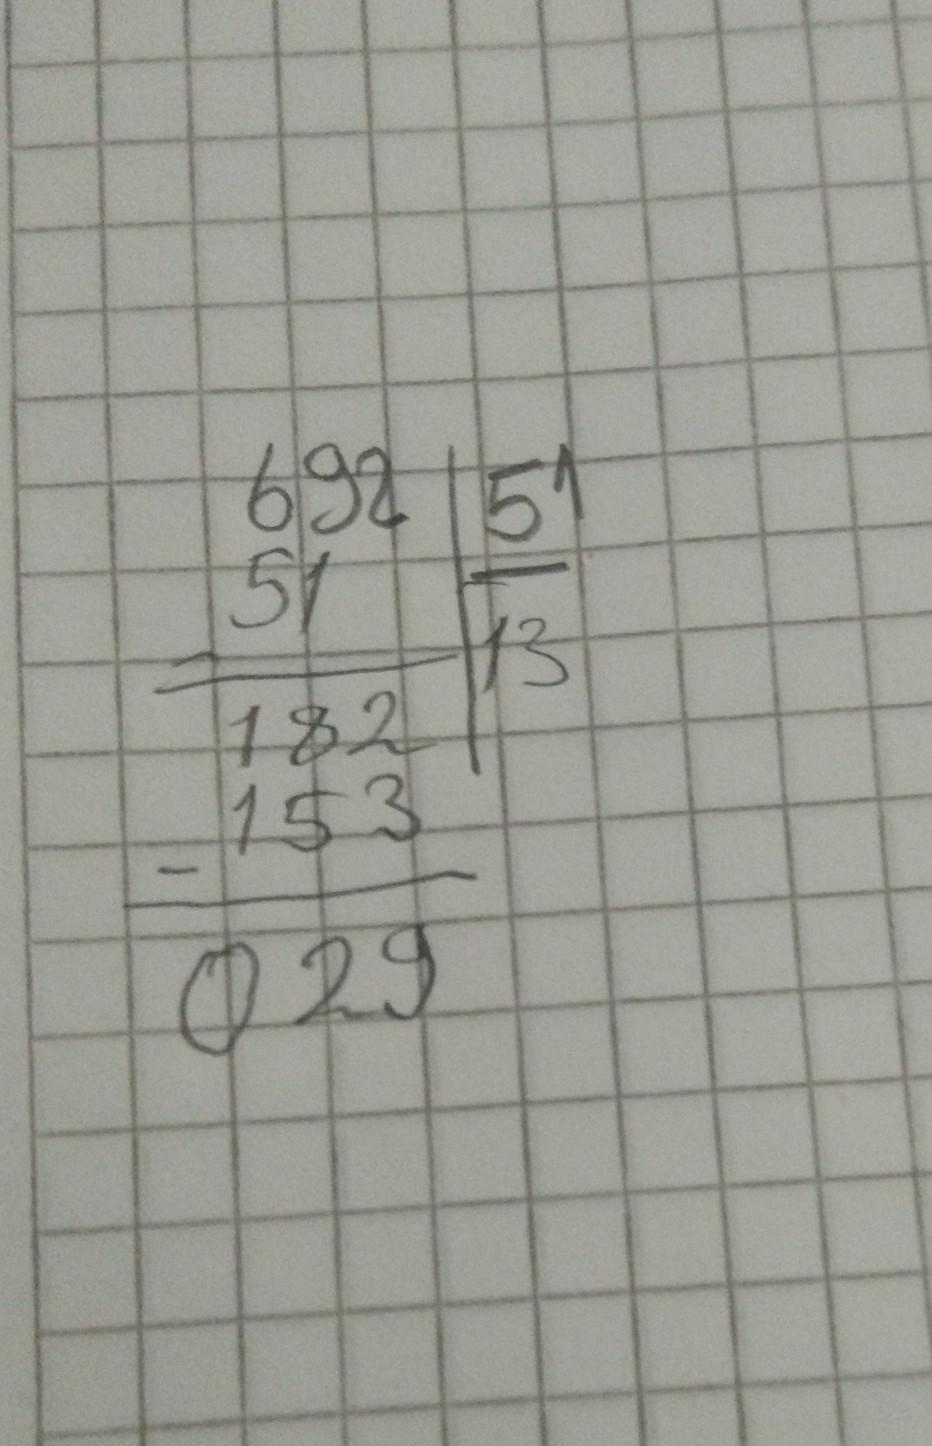 692 51
51 13
-
182
153
-
029